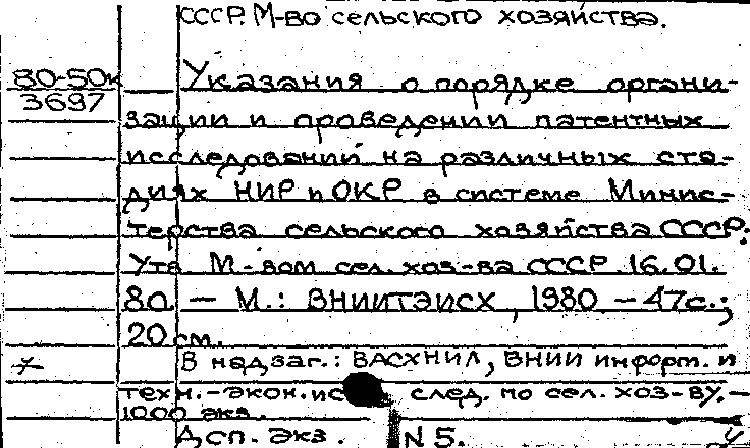 СССР. М-во сельского хозяйства.
80-50к
3697
Указания о порядке органи-
зации и проведении патентных
исследований на различных ста-
диях НИР и ОКР в системе Минис-
терства сельского хозяйства СССР.
Утв. М-вом сел. хоз-ва СССР 16.01.
80. – М.: ВНИИТЭИСХ, 1980 – 47с.;
20 см.
В надзаг.: ВАСХНИЛ, ВНИИ информ. и
техн.-экон. ис след. по сел. хоз-ву. –
1000 экз.
Дсп. Экз. N 5.